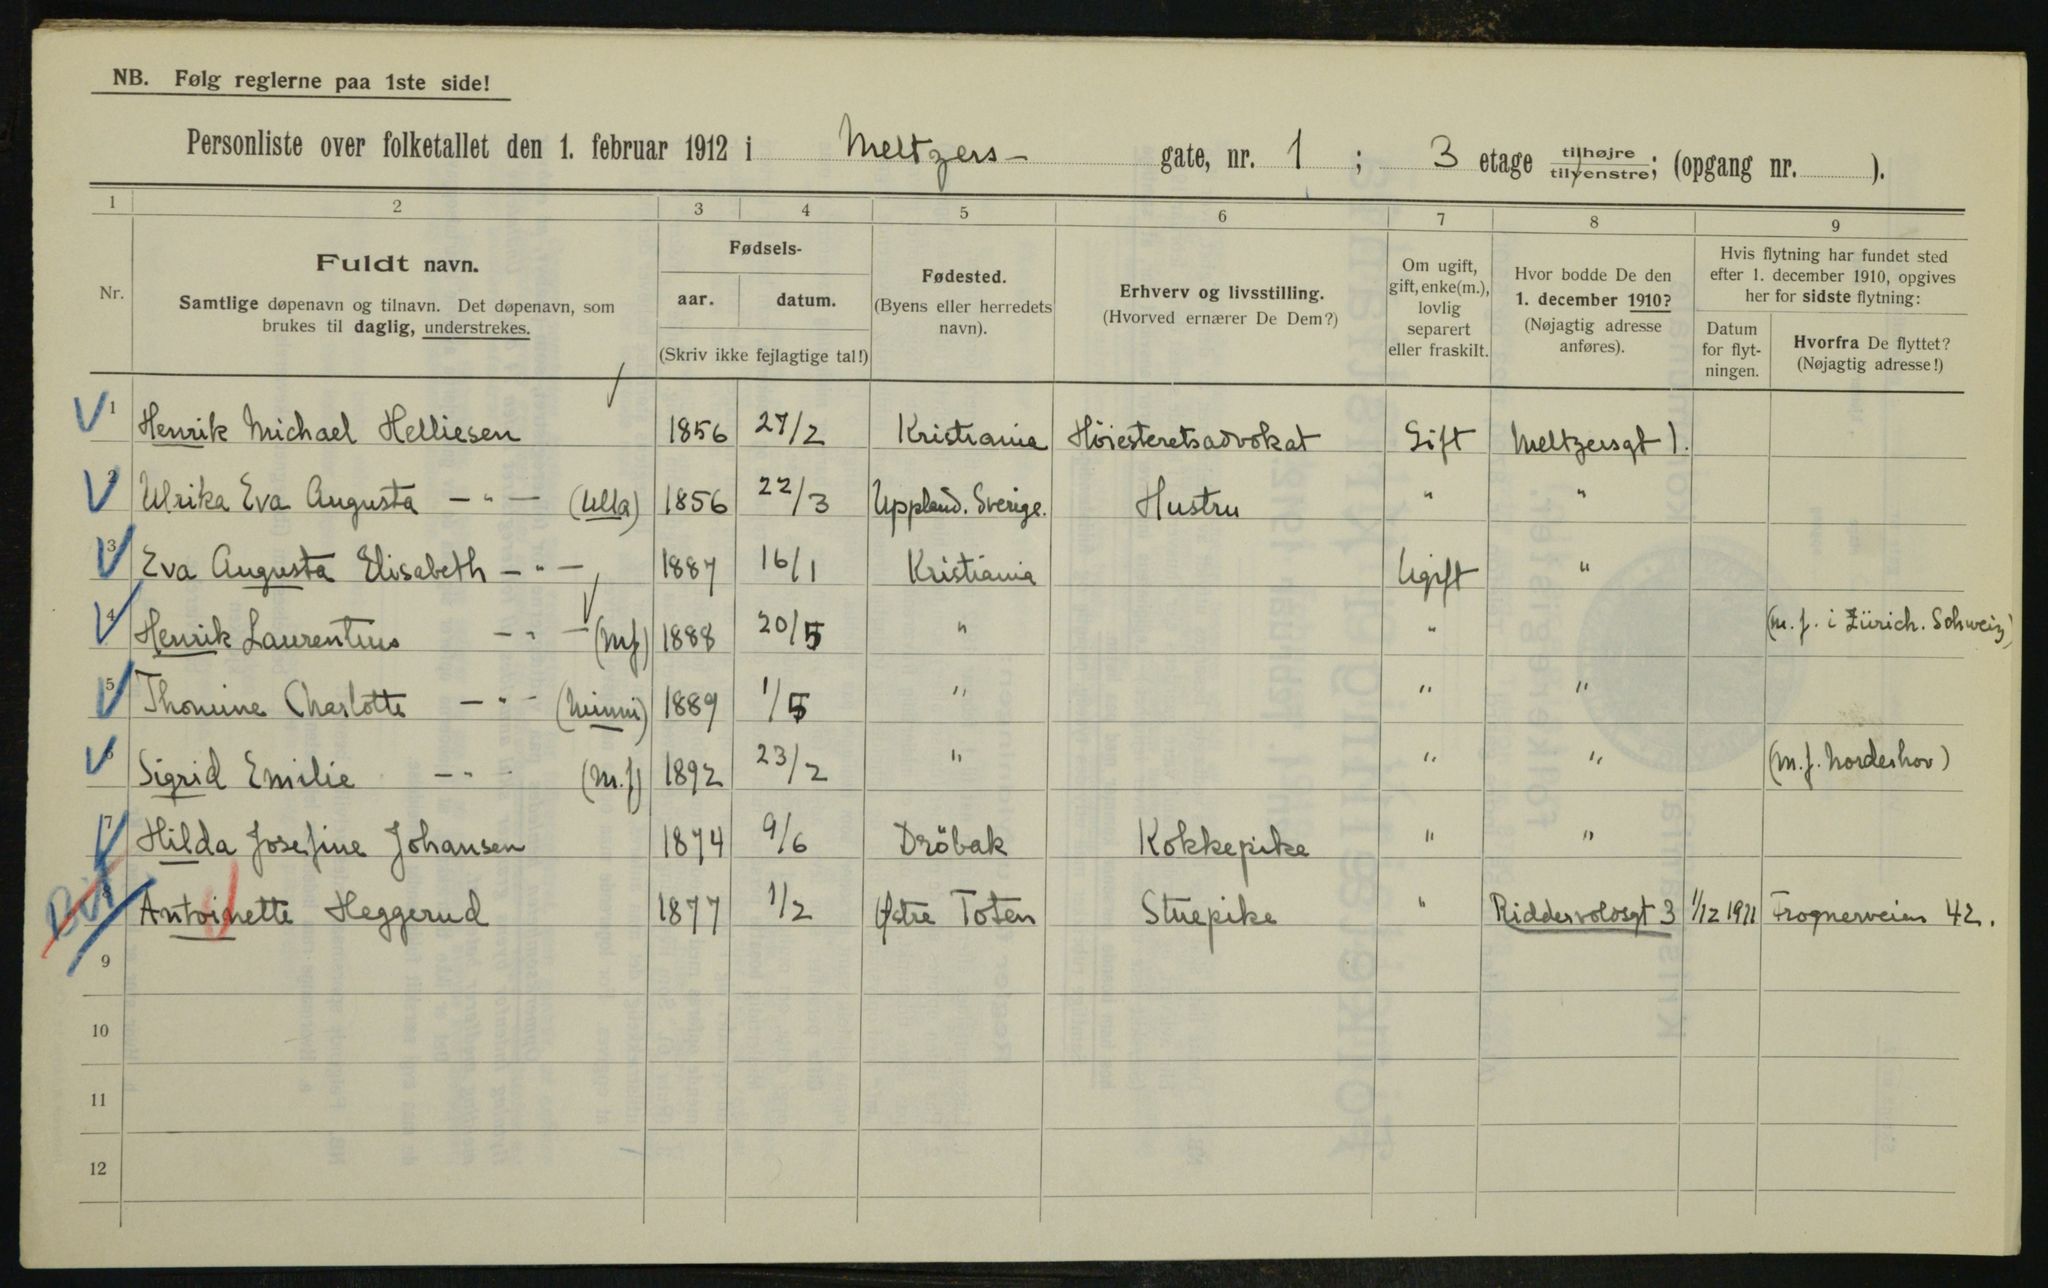 NB. Følg reglerne paa 1ste side!
Personliste over folketallet den 1. februar 1912 i Meltzers- gate, nr. 1 ; 3 etage tilhøjre tilvenstre; (opgang nr. ).
1 2 3 4 5 6 7 8 9
Nr.
Fuldt navn.
Samtlige døpenavn og tilnavn. Det døpenavn, som
brukes til daglig, understrekes.
Fødsels-
aar. datum.
(Skriv ikke fejlagtige tal!)
Fødested.
(Byens eller herredets
navn).
Erhverv og livsstilling.
(Hvorved ernærer De Dem?)
Om ugift,
gift, enke(m.),
lovlig
separert
eller fraskilt.
Hvor bodde De den
1. december 1910?
(Nøjagtig adresse
anføres).
Hvis flytning har fundet sted
efter 1. december 1910, opgives
her for sidste flytning:
Datum
for flyt-
ningen.
Hvorfra De flyttet?
(Nøjagtig adresse!)
1 Henrik Michael Helliesen 1856 27/2 Kristiania Höiesteretsadvokat Gift Meltzersgt 1.
2 Ulrika Eva Augusta — " — (Ulla) 1856 22/3 Uppland. Sverige. Hustru " "
3 Eva Augusta Elisabeth — " — 1887 16/1 Kristiania Ugift "
4 Henrik Laurentius — " — (mf) 1888 20/5 " " (m.f. i Zürich. Schweiz)
5 Thomine Charlotte — " — (Minni) 1889 1/5 " " "
6 Sigrid Emilie — " — (m.f) 1892 23/2 " " " (m.f. Norderhov)
7 Hilda Josefine Johansen 1874 9/6 Dröbak Kokkepike " "
8 Antoinette Heggerud 1877 1/2 Østre Toten Stuepike " Riddervoldsgt 3 1/12 1911 Frognerveien 42.
9
10
11
12